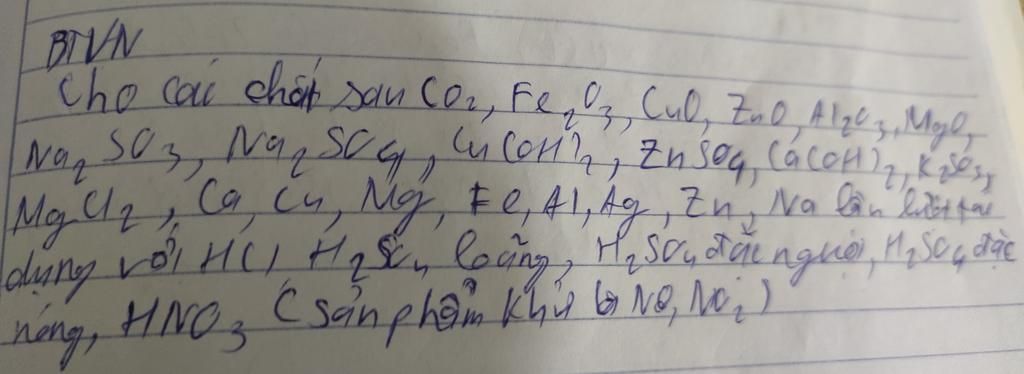 BTVN
Cho các chất sau CO₂, Fe₂O₃, CuO, ZnO, Al₂O₃, MgO,
Na₂SO₃, Na₂SO₄, Cu(OH)₂, ZnSO₄, Ca(OH)₂, K₂SO₃,
MgCl₂, Ca, Cu, Mg, Fe, Al, Ag, Zn, Na lần lượt tác
dụng với HCl, H₂SO₄ loãng, H₂SO₄ đặc nguội, H₂SO₄ đặc
nóng, HNO₃ (sản phẩm khử là NO, NO₂)